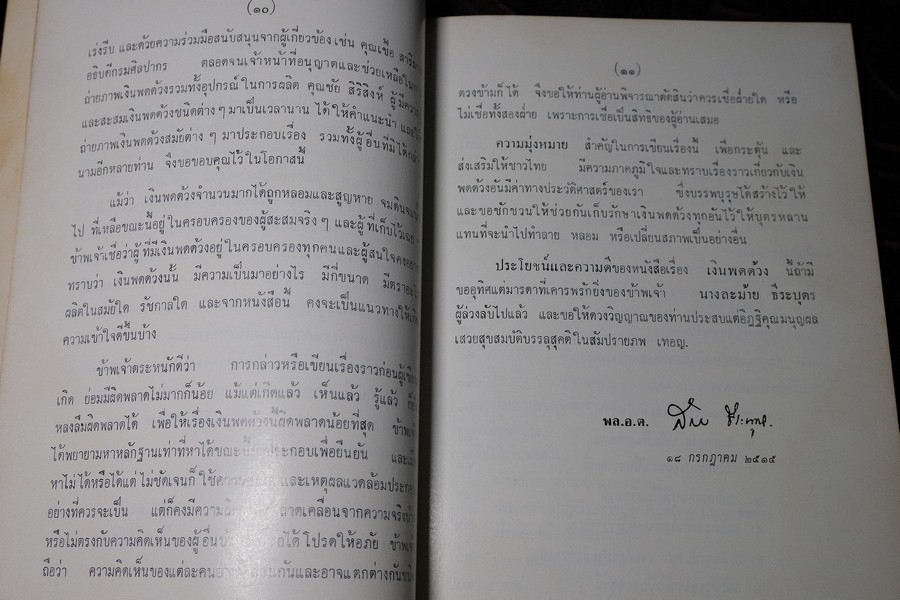 (๑๐)
เร่งรีบ และด้วยความร่วมมือสนับสนุนจากผู้เกี่ยวข้อง เช่น คุณเชื้อ สาริมา
อธิบดีกรมศิลปากร ตลอดจนเจ้าหน้าที่อนุญาตและช่วยเหลือใน
ถ่ายภาพเงินพดด้วงรวมทั้งอุปกรณ์ในการผลิต คุณชัย สิริสิงห์ ผู้มีความ
และสะสมเงินพดด้วงชนิดต่าง ๆ มาเป็นเวลานาน ได้ให้คำแนะนำ และ
ถ่ายภาพเงินพดด้วงสมัยต่าง ๆ มาประกอบเรื่อง รวมทั้งผู้อื่นที่มิได้
นามอีกหลายท่าน จึงขอขอบคุณไว้ในโอกาสนี้
แม้ว่า เงินพดด้วงจำนวนมากได้ถูกหลอมและสูญหาย จมดิน
ไป ที่เหลือขณะนี้อยู่ในครอบครองของผู้สะสมจริง ๆ และผู้ที่เก็บไว้
ข้าพเจ้าเชื่อว่าผู้ที่มีเงินพดด้วงอยู่ในครอบครองทุกคนและผู้สนใจคง
ทราบว่า เงินพดด้วงนั้น มีความเป็นมาอย่างไร มีกี่ขนาด มีตรา
ผลิตในสมัยใด รัชกาลใด และจากหนังสือนี้ คงจะเป็นแนวทางให้
ความเข้าใจดีขึ้นบ้าง
ข้าพเจ้าตระหนักดีว่า การกล่าวหรือเขียนเรื่องราวก่อนผู้
เกิด ย่อมมีผิดพลาดไม่มากก็น้อย แม้แต่เกิดแล้ว เห็นแล้ว รู้แล้ว
หลงลืมผิดพลาดได้ เพื่อให้เรื่องเงินพดด้วงนี้ผิดพลาดน้อยที่สุด
ได้พยายามหาหลักฐานเท่าที่หาได้ขณะนี้ ประกอบเพื่อยืนยัน
หาไม่ได้หรือได้แต่ไม่ชัดเจนก็ใช้ และเหตุผลแวดล้อม
อย่างที่ควรจะเป็น แต่ก็คงมีความ คลาดเคลื่อนจากความจริง
หรือไม่ตรงกับความคิดเห็นของผู้อื่น ได้ โปรดให้อภัย
ถือว่า ความคิดเห็นของแต่ละคน กันและอาจแตกต่างกัน
(๑๑)
ตรงข้ามก็ได้ จึงขอให้ท่านผู้อ่านพิจารณาตัดสินว่าควรเชื่อฝ่ายใด หรือ
ไม่เชื่อทั้งสองฝ่าย เพราะการเชื่อเป็นสิทธิของผู้อ่านเสมอ
ความมุ่งหมาย สำคัญในการเขียนเรื่องนี้ เพื่อกระตุ้น และ
ส่งเสริมให้ชาวไทย มีความภาคภูมิใจและทราบเรื่องราวเกี่ยวกับเงิน
พดด้วงอันมีค่าทางประวัติศาสตร์ของเรา ซึ่งบรรพบุรุษได้สร้างไว้ให้
และขอชักชวนให้ช่วยกันเก็บรักษาเงินพดด้วงทุกอันไว้ให้บุตรหลาน
แทนที่จะนำไปทำลาย หลอม หรือเปลี่ยนสภาพเป็นอย่างอื่น
ประโยชน์และความดีของหนังสือเรื่อง เงินพดด้วง นี้ถ้ามี
ขออุทิศแด่มารดาที่เคารพรักยิ่งของข้าพเจ้า นางละม้าย ธีระบุตร
ผู้ล่วงลับไปแล้ว และขอให้ดวงวิญญาณของท่านประสบแต่อิฏฐิคุณมนุญผล
เสวยสุขสมบัติบรรลุสุคติในสัมปรายภพ เทอญ.
พล.อ.ต.
๑๘ กรกฎาคม ๒๕๑๕